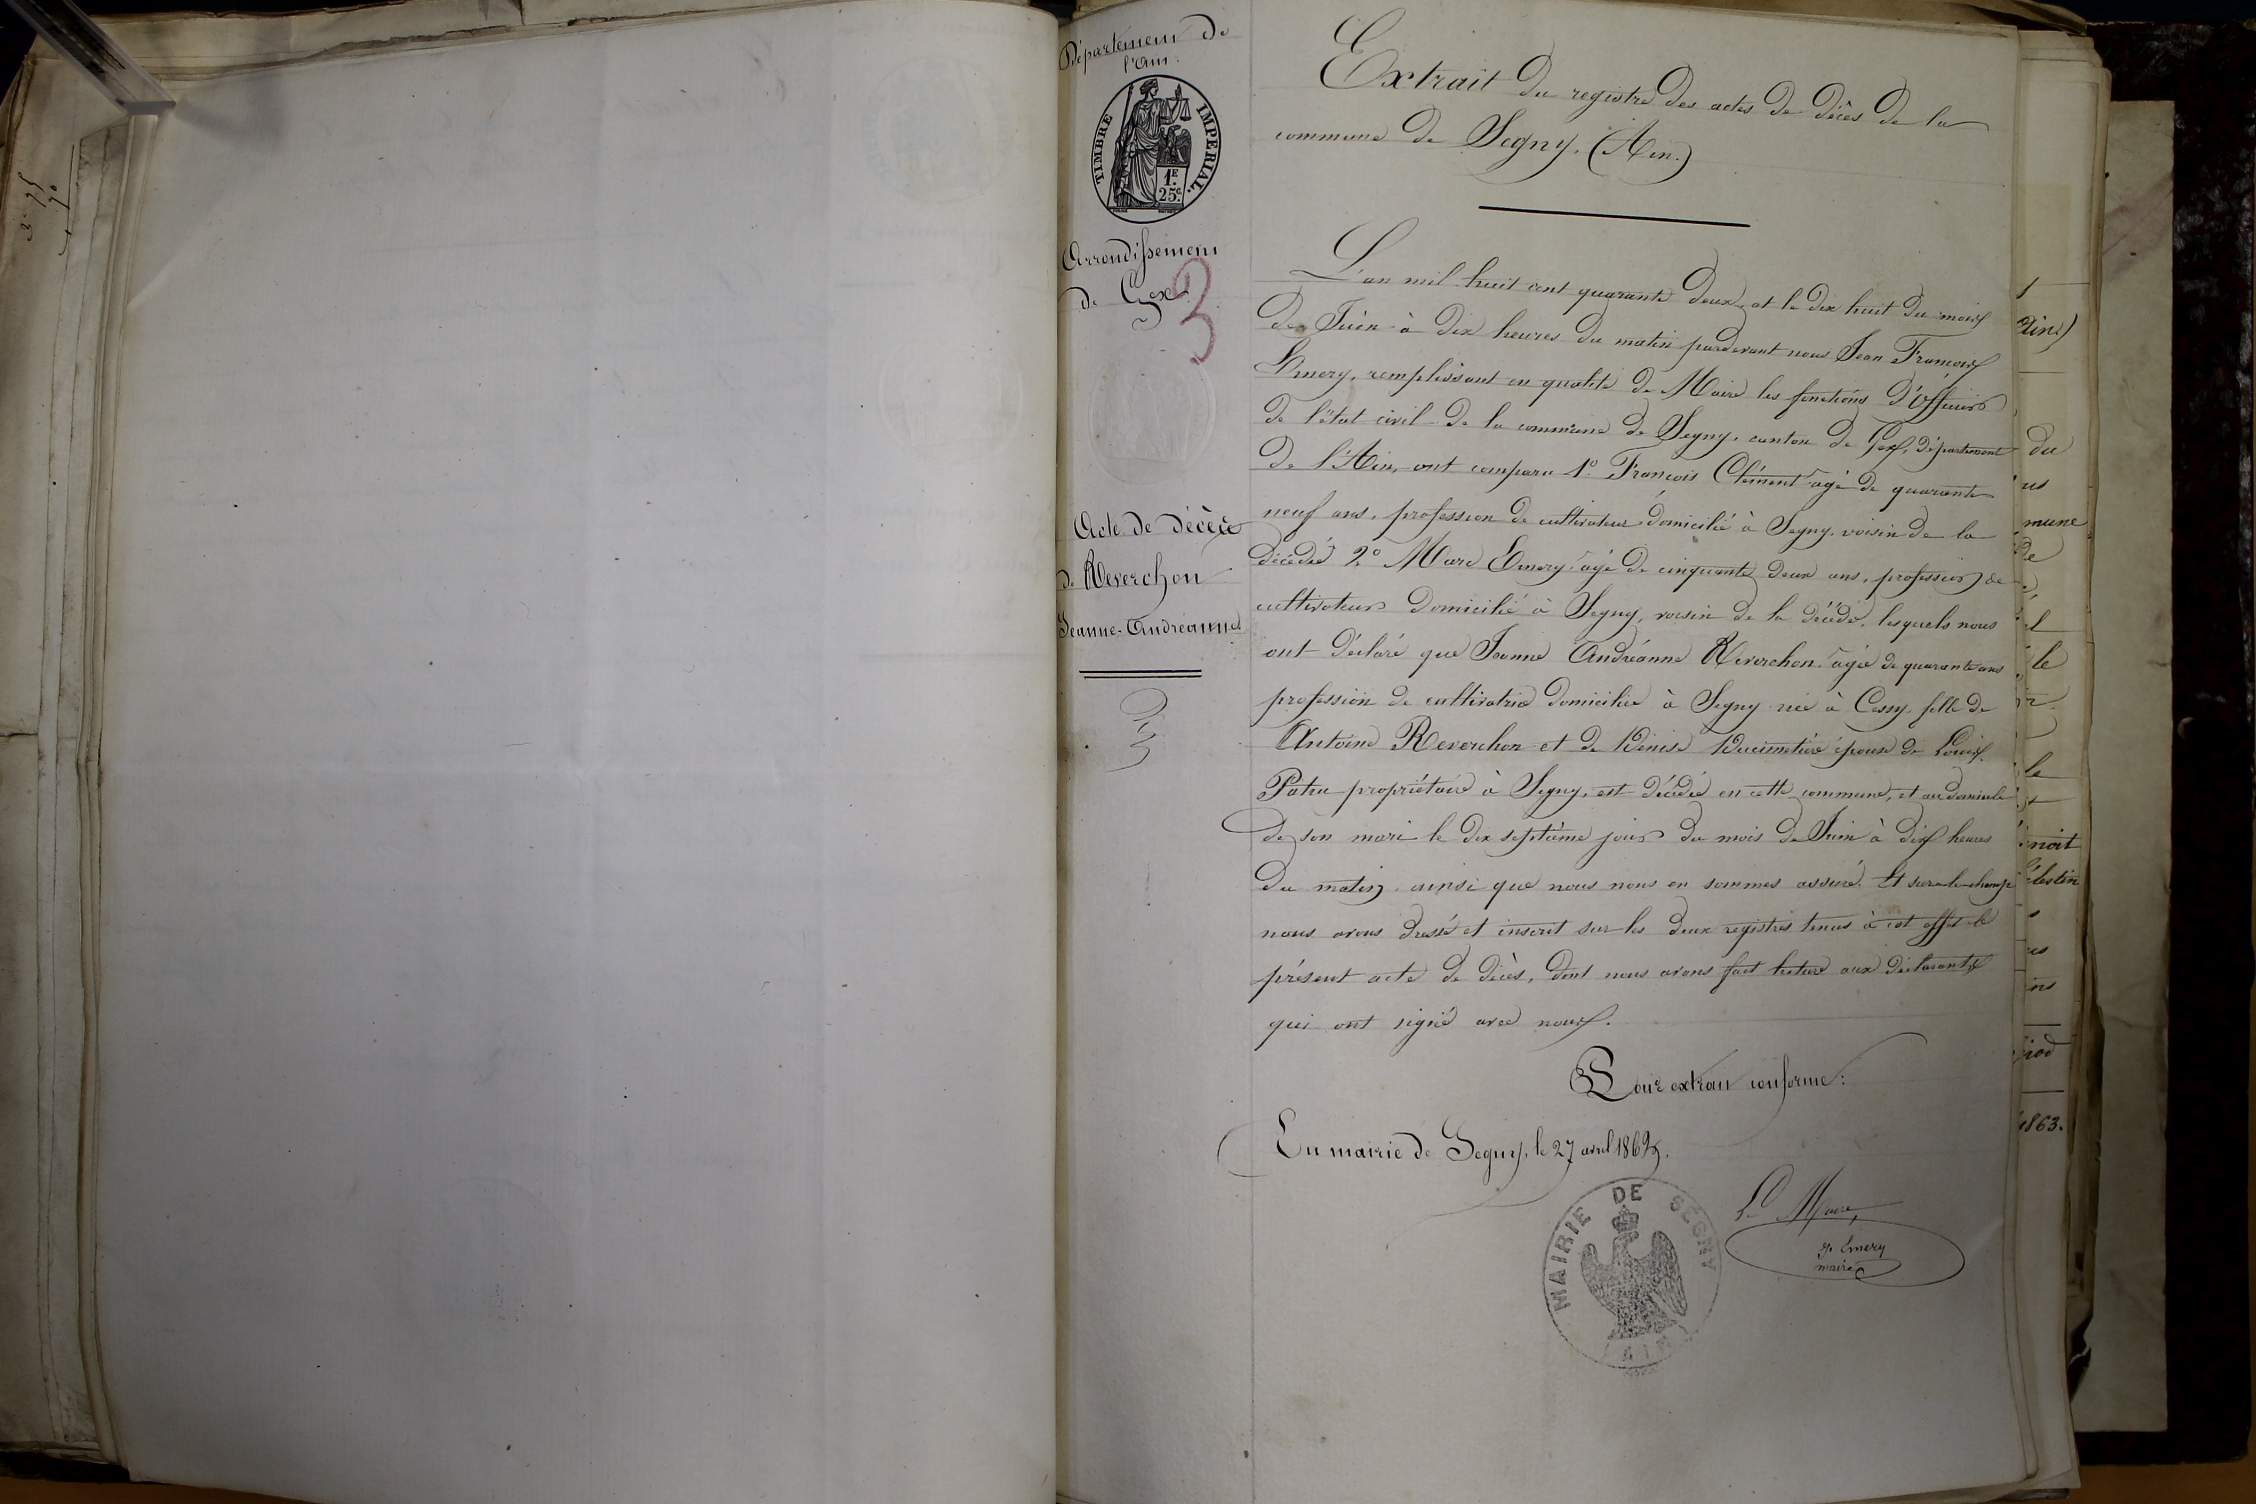 Département de
l'Ain.
TIMBRE IMPÉRIAL.
1F
25c
Arrondissement
de Gex
3
Acte de décès
de Reverchon
Jeanne-Andréanne
Extrait du registre des actes de décès de la
commune de Segny. (Ain.)
L'an mil huit cent quarante deux, et le dix huit du mois
de Juin à dix heures du matin pardevant nous Jean François
Emery, remplissant en qualité de Maire les fonctions d'Officier
de l'état civil de la commune de Segny, canton de Gex, département
de l'Ain, ont comparu 1º François Clément âgé de quarante
neuf ans, profession de cultivateur domicilié à Segny, voisin de la
décédée 2º Marc Emery âgé de cinquante deux ans, profession de
cultivateur domicilié à Segny, voisin de la décédé, lesquels nous
ont déclaré que Jeanne Andréanne Reverchon âgée de quarante ans
profession de cultivatrice domiciliée à Segny née à Cessy fille de
Antoine Reverchon et de Dénise Ducimetière épouse de Louis
Patru propriétaire à Segny, est décédée en cette commune, et au domicile
de son mari le dix septième jour du mois de Juin à dix heures
du matin, ainsi que nous nous en sommes assuré. Et sur-le-champ
nous avons dressé et inscrit sur les deux registres tenus à cet effet le
présent acte de décès, dont nous avons fait lecture aux déclarants
qui ont signé avec nous.
Pour extrait conforme:
En mairie de Segny, le 27 avril 1863.
Le Maire,
Emery
maire
MAIRIE DE SEGNY
AIN
du
mune
de
el
le
le
noit
élestin
ins
1863.